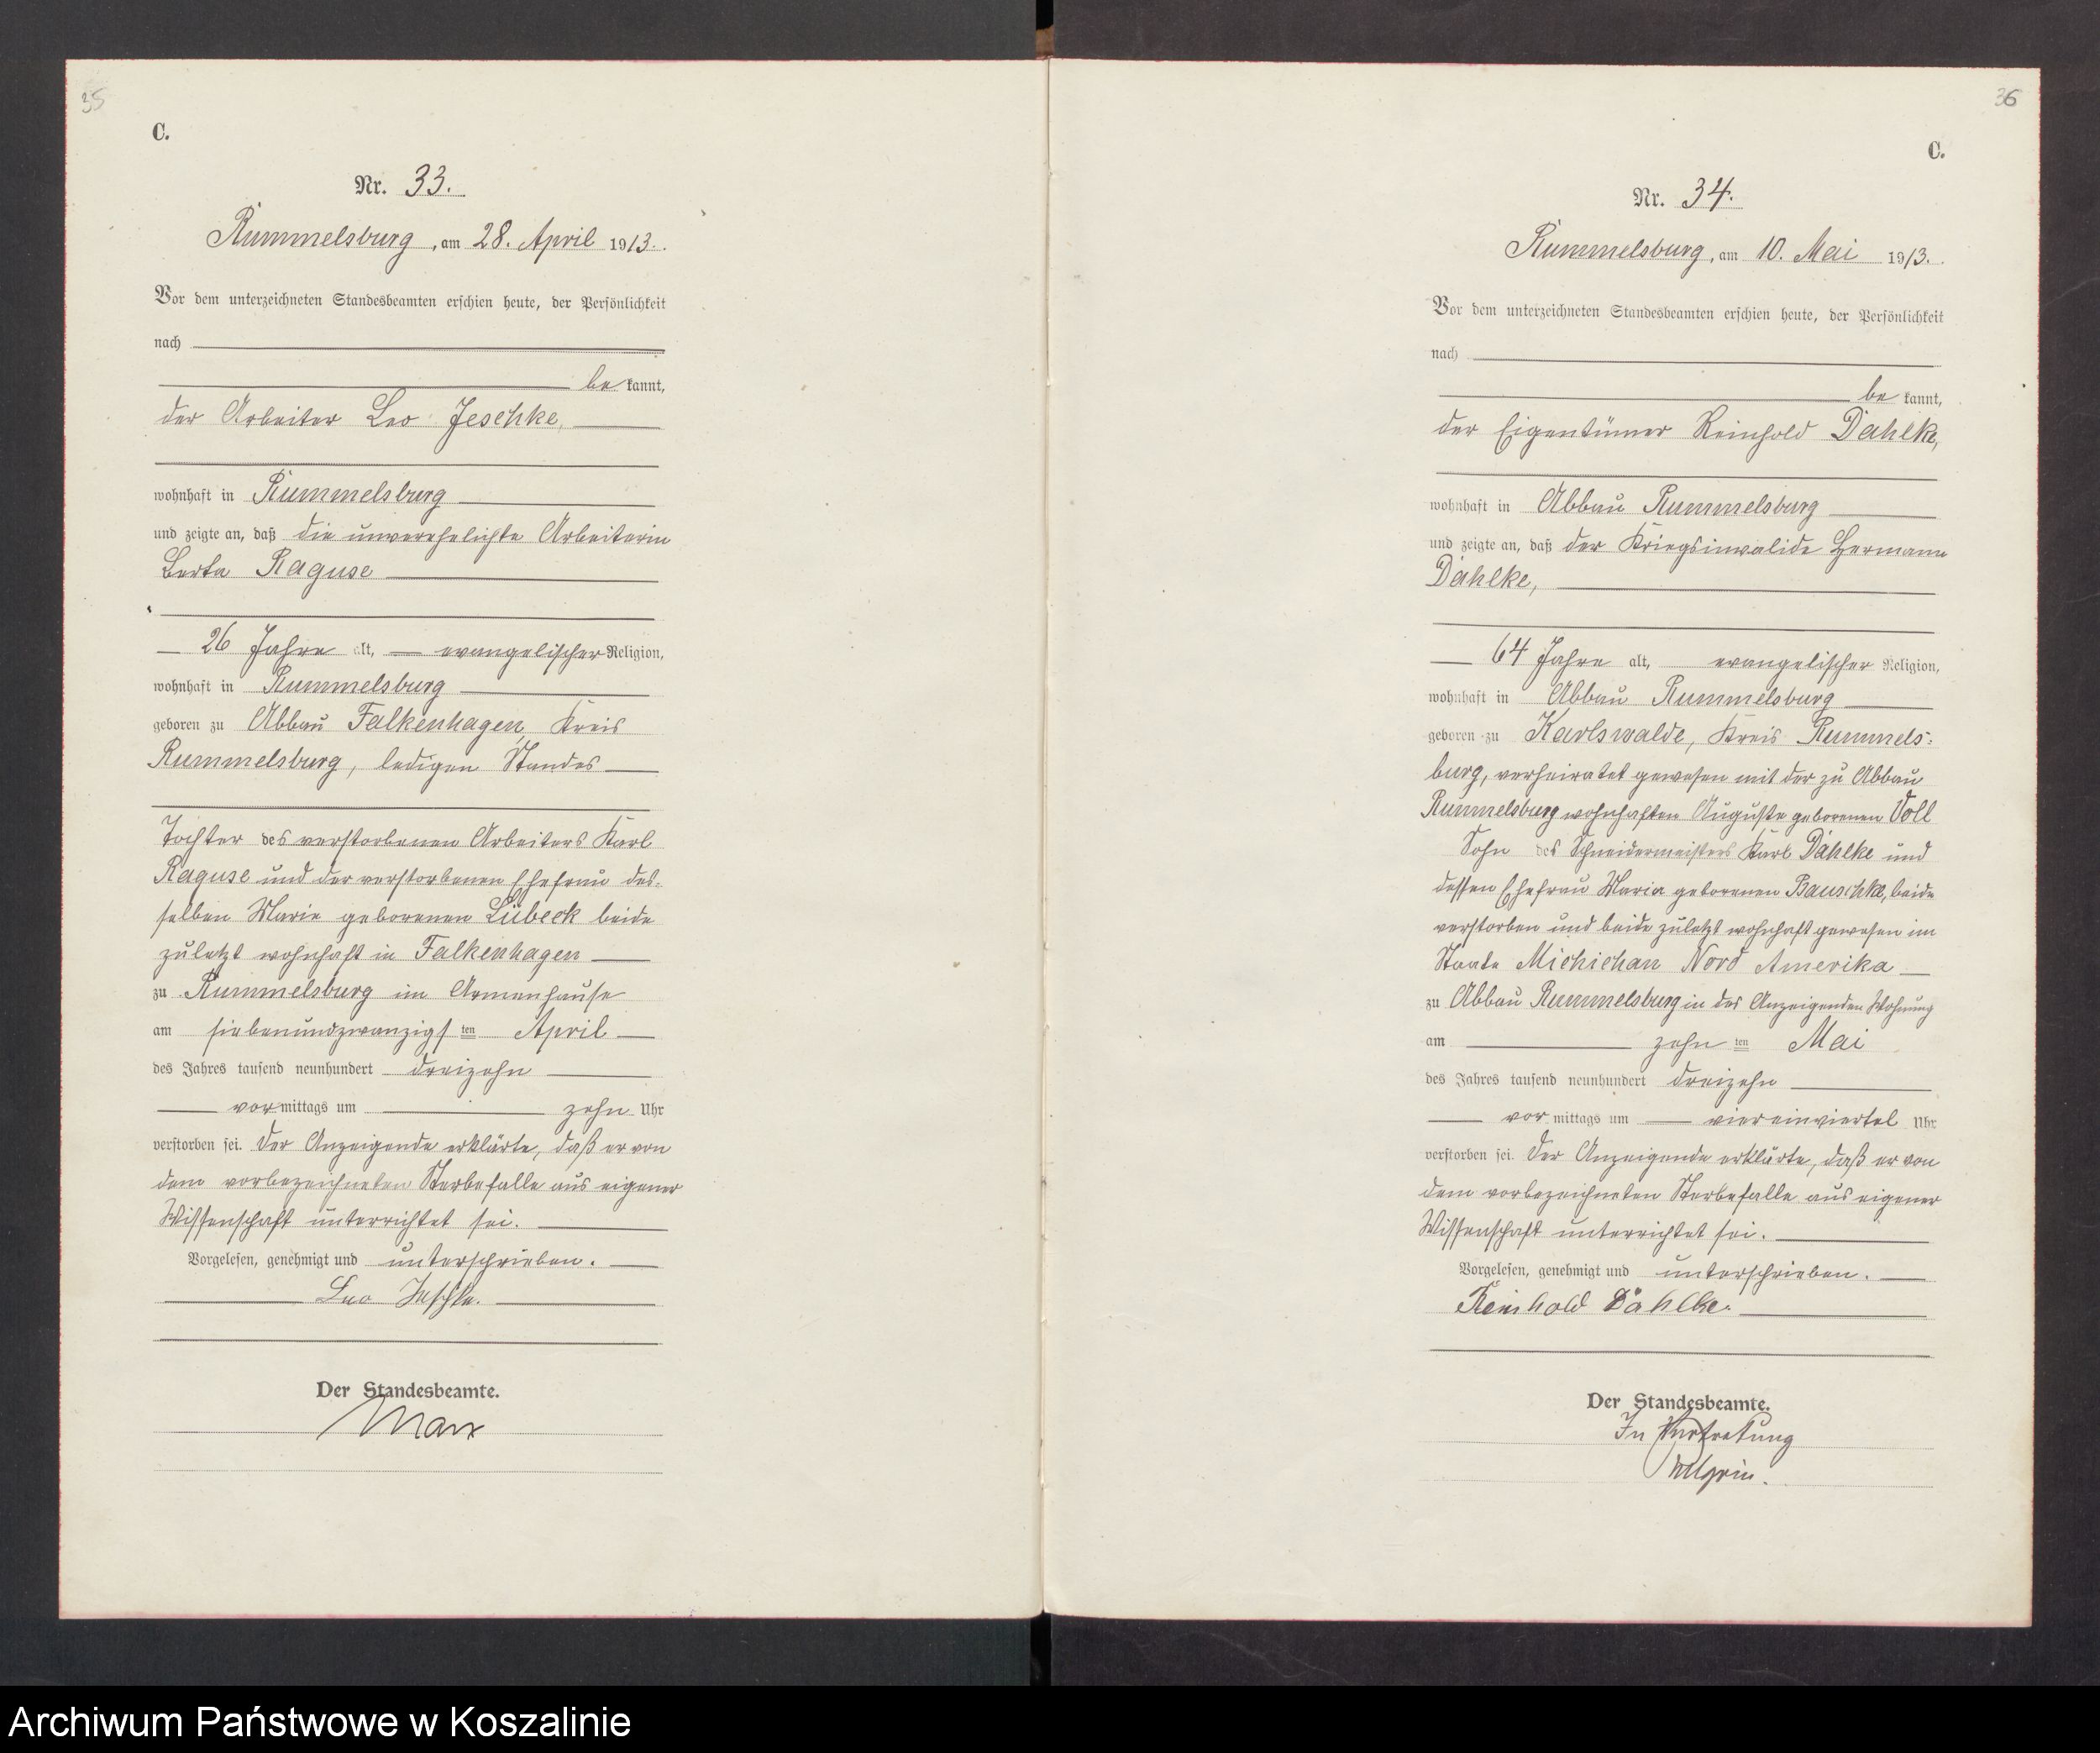 35
C.
Nr. 33.
Rummelsburg, am 28. April 1913.
Vor dem unterzeichneten Standesbeamten erschien heute, der Persönlichkeit
nach
be kannt,
der Arbeiter Leo Jeschke,
wohnhaft in Rummelsburg
und zeigte an, daß die unverehelichte Arbeiterin
Berta Raguse
26 Jahre alt, evangelischer Religion,
wohnhaft in Rummelsburg
geboren zu Abbau Falkenhagen, Kreis
Rummelsburg, ledigen Standes
Tochter des verstorbenen Arbeiters Karl
Raguse und der verstorbenen Ehefrau des-
selben Marie geborenen Lübeck beide
zuletzt wohnhaft in Falkenhagen
zu Rummelsburg im Armenhause
am siebenundzwanzigsten April
des Jahres tausend neunhundert dreizehn
vormittags um zehn Uhr
verstorben sei. Der Anzeigende erklärte, daß er von
dem vorbezeichneten Sterbefalle aus eigener
Wissenschaft unterrichtet sei.
Vorgelesen, genehmigt und unterschrieben.
Leo Jeschke.
Der Standesbeamte.
Marx
36
C.
Nr. 34.
Rummelsburg, am 10. Mai 1913.
Vor dem unterzeichneten Standesbeamten erschien heute, der Persönlichkeit
nach
be kannt,
der Eigentümer Reinhold Dahlke,
wohnhaft in Abbau Rummelsburg
und zeigte an, daß der Kriegsinvalide Hermann
Dahlke,
64 Jahre alt, evangelischer Religion,
wohnhaft in Abbau Rummelsburg
geboren zu Karlswalde, Kreis Rummels-
burg, verheiratet gewesen mit der zu Abbau
Rummelsburg wohnhaften Auguste geborenen Voll
Sohn des Schneidermeisters Karl Dahlke und
dessen Ehefrau Maria geborenen Bauschke, beide
verstorben und beide zuletzt wohnhaft gewesen im
Staate Michichan Nord Amerika
zu Abbau Rummelsburg in des Anzeigenden Wohnung
am zehn ten Mai
des Jahres tausend neunhundert dreizehn
vor mittags um viereinviertel Uhr
verstorben sei. Der Anzeigende erklärte, daß er von
dem vorbezeichneten Sterbefalle aus eigener
Wissenschaft unterrichtet sei.
Vorgelesen, genehmigt und unterschrieben.
Reinhold Dahlke.
Der Standesbeamte.
In Vertretung
Archiwum Państwowe w Koszalinie